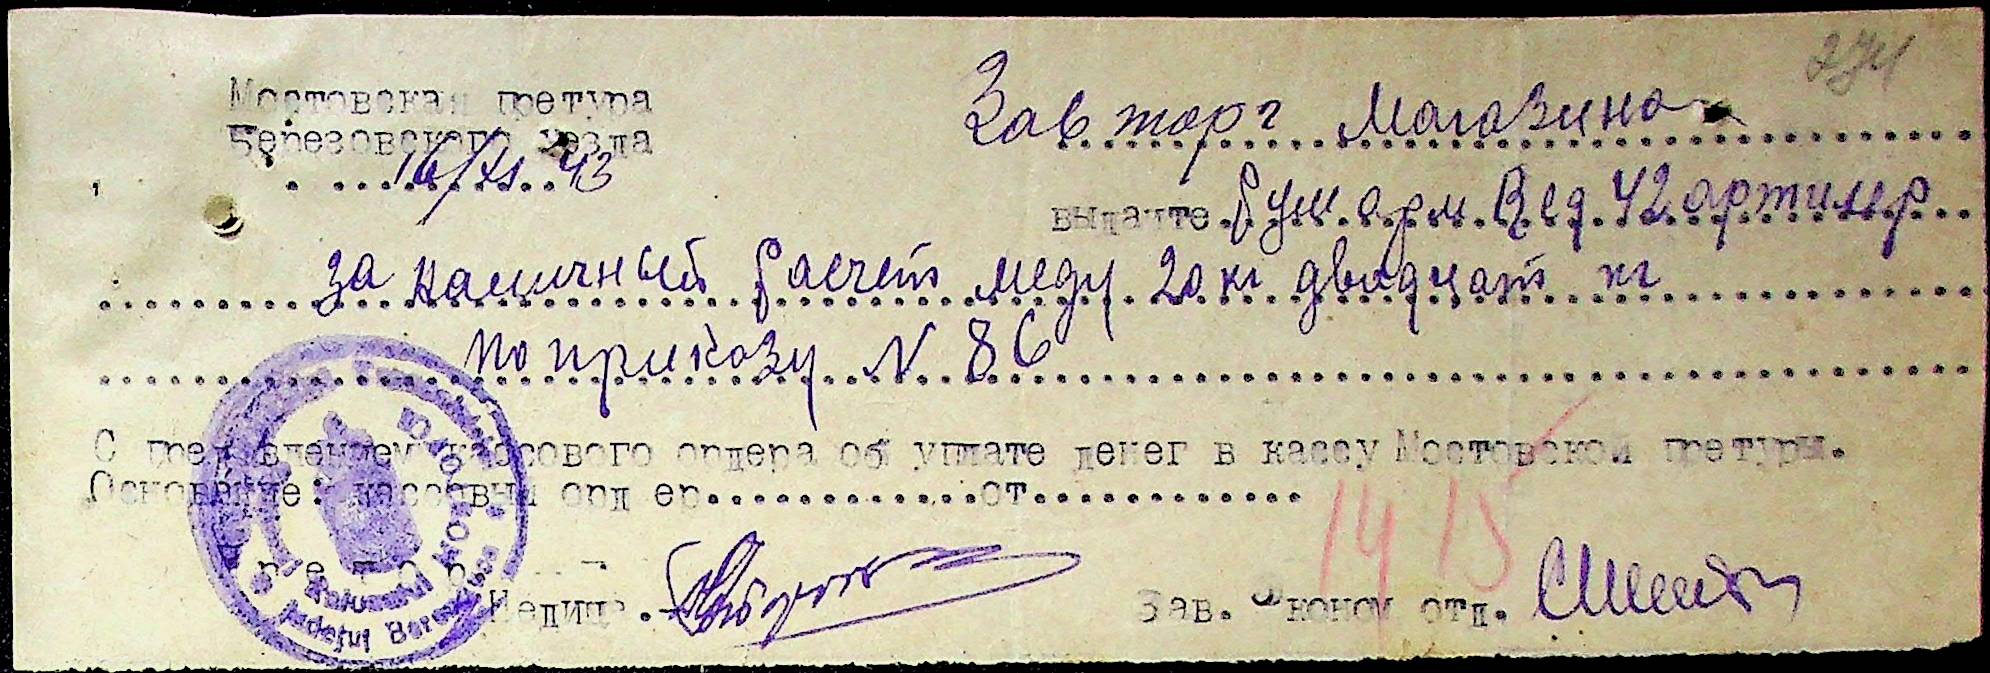 274
Мостовская претура
Березовского уезда
16/XI 43
Зав торг Магазина
выдайте рум. арм. 42 артилер
за наличный расчет меду 20 кг двадцат кг
по приказу N 86
С пред влением кассового ордера об уплате денег в кассу Мостовской претуры.
Основание: кассовый орд ер..............от.............
14 15
Претор
Зав. Эконом отд.
Judeţul Berezovca